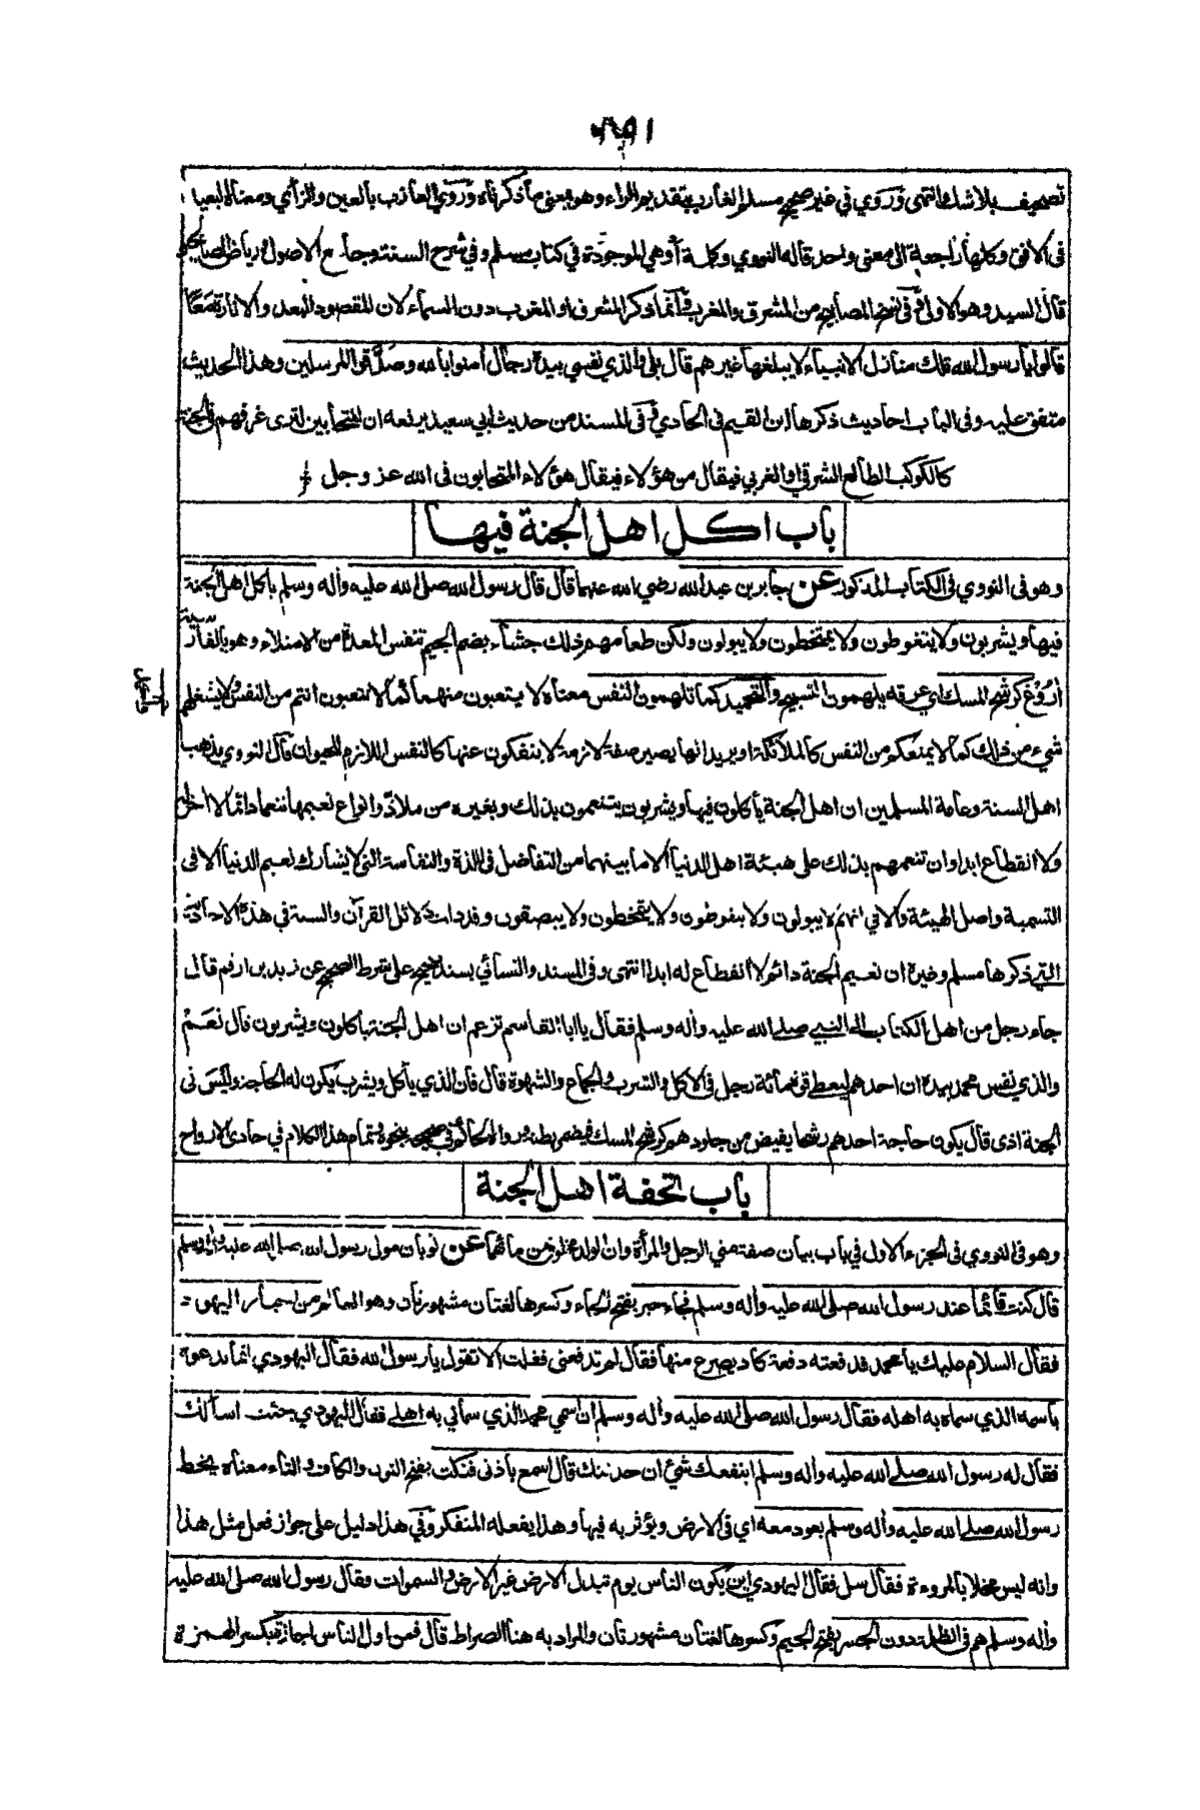 تصحيف بلا شك انتهى وروي في غير صحيح مسلم الغارب بتقديم الراء وهو بمعنى ما ذكرناه وروي العازب بالعين والزأي ومعناه البعيد
في الافق وكلها راجعة الى معنى واحد قاله النووي وكلمة أو هي الموجودة في كتاب مسلم وفي شرح السنة وجامع الاصول ورياض الصالحين
قال السيد وهو الاولى وفي نسخ المصابيح من المشرق والمغرب وانما ذكر المشرق او المغرب دون السماء لان المقصود البعد والانارة معا
قالوا يا رسول الله تلك منازل الانبياء لا يبلغها غيرهم قال بلى والذي نفسي بيده رجال أمنوا بالله وصدقوا المرسلين وهذا الحديث
متفق عليه وفي الباب احاديث ذكرها ابن القيم في الحادي وفي المسند من حديث ابي سعيد يرفعه ان المتحابين لترى غرفهم في الجنة
كالكوكب الطالع الشرقي او الغربي فيقال من هؤلاء فيقال هؤلاء المتحابون في الله عز وجل
باب اكل اهل الجنة فيها
وهو في النووي في الكتاب المذكور عن جابر بن عبد الله رضي الله عنهما قال قال رسول الله صلى الله عليه وأله وسلم يأكل اهل الجنة
فيها ويشربون ولا يتغوطون ولا يمتخطون ولا يبولون ولكن طعامهم ذلك جشاء بضم الجيم تنفس المعدة من الامتلاء وهو بالفارسية
أروغ كرشح المسك اي عرقه يلهمون التسبيح والتحميد كما تلهمون النفس معناه لا يتعبون منهما كما لا تتعبون انتم من النفس ولا يشغلهم
شيء من ذلك كما لا يمنعكم من النفس كالملائكة او يريد انها يصير صفة لازمة لا ينفكون عنها كالنفس اللازم للحيوان قال النووي يذهب
اهل السنة وعامة المسلمين ان اهل الجنة يأكلون فيها ويشربون يتنعمون بذلك وبغيره من ملاذ وانواع نعيمها تنعما دائما لا اخر له
ولا انقطاع ابدا وان تنعمهم بذلك على هيئة اهل الدنيا الا ما بينهما من التفاضل في اللذة والنفاسة التي لا يشارك نعيم الدنيا الا في
التسمية واصل الهيئة والا في انهم لا يبولون ولا يتغوطون ولا يتمخطون ولا يبصقون وقد دلت دلائل القرآن والسنة في هذه الاحاديث
التي ذكرها مسلم وغيره ان نعيم الجنة دائم لا انقطاع له ابدا انتهى وفي المسند والنسائي بسند صحيح على شرط الصحيح عن زيد بن ارقم قال
جاء رجل من اهل الكتاب الى النبي صلى الله عليه وأله وسلم فقال يا ابا القاسم تزعم ان اهل الجنة يأكلون ويشربون قال نعم
والذي نفس محمد بيده ان احدهم ليعطى قوة مائة رجل في الاكل والشرب والجماع والشهوة قال فان الذي يأكل ويشرب يكون له الحاجة وليس في
الجنة اذى قال يكون حاجة احدهم رشحا يفيض من جلودهم كرشح المسك فيضمر بطنه ورواه الحاكم في صحيحه بنحوه وتمام هذا الكلام في حادي الارواح
باب تحفة اهل الجنة
وهو في النووي في الجزء الاول في باب بيان صفة مني الرجل والمرأة وان الولد مخلوق من مائهما عن ثوبان مولى رسول الله صلى الله عليه وأله وسلم
قال كنت قائما عند رسول الله صلى الله عليه وأله وسلم فجاء حبر بفتح الحاء وكسرها لغتان مشهورتان وهو العالم من احبار اليهود
فقال السلام عليك يا محمد فدفعته دفعة كاد يصرع منها فقال لم تدفعني فقلت الا تقول يا رسول الله فقال اليهودي انما ندعوه
باسمه الذي سماه به اهله فقال رسول الله صلى الله عليه وأله وسلم ان اسمي محمد الذي سماني به اهلي فقال اليهودي جئت اسألك
فقال له رسول الله صلى الله عليه وأله وسلم اينفعك شيء ان حدثتك قال اسمع باذني فنكت بفتح النون والكاف والتاء معناه يخط
رسول الله صلى الله عليه وأله وسلم بعود معه اي في الارض ويؤثر به فيها وهذا يفعله المتفكر وفي هذا دليل على جواز فعل مثل هذا
وانه ليس مخلا بالمروءة فقال سل فقال اليهودي اين يكون الناس يوم تبدل الارض غير الارض والسموات فقال رسول الله صلى الله عليه
وأله وسلم هم في الظلمة دون الجسر بفتح الجيم وكسرها لغتان مشهورتان والمراد به هنا الصراط قال فمن اول الناس اجازة بكسر الهمزة